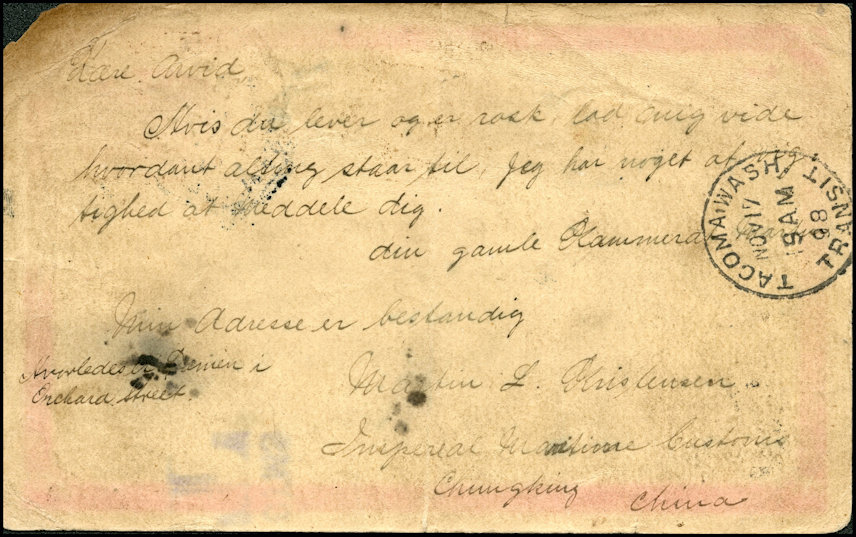 Kære Arvid,
Hvis du lever og er rask, lad mig vide
hvordant alting staar til, Jeg har noget af vig-
tighed at meddele dig.
din gamle Kammerat Martin
Min Adresse er bestandig
Hvorledes er Damen i
Orchard Street.
Martin L. Kristensen
Impereal Maritime Customs
Chungking
China
TACOMA, WASH.
NOV 17
5 AM
98
TRANSIT